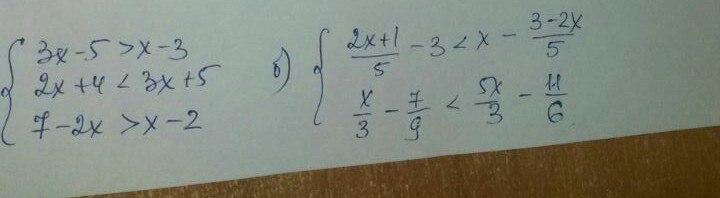 3x-5 > x-3
2x+4 < 3x+5
7-2x > x-2
б) 2x+1/5 - 3 < x - 3-2x/5
x/3 - 7/9 < 5x/3 - 11/6